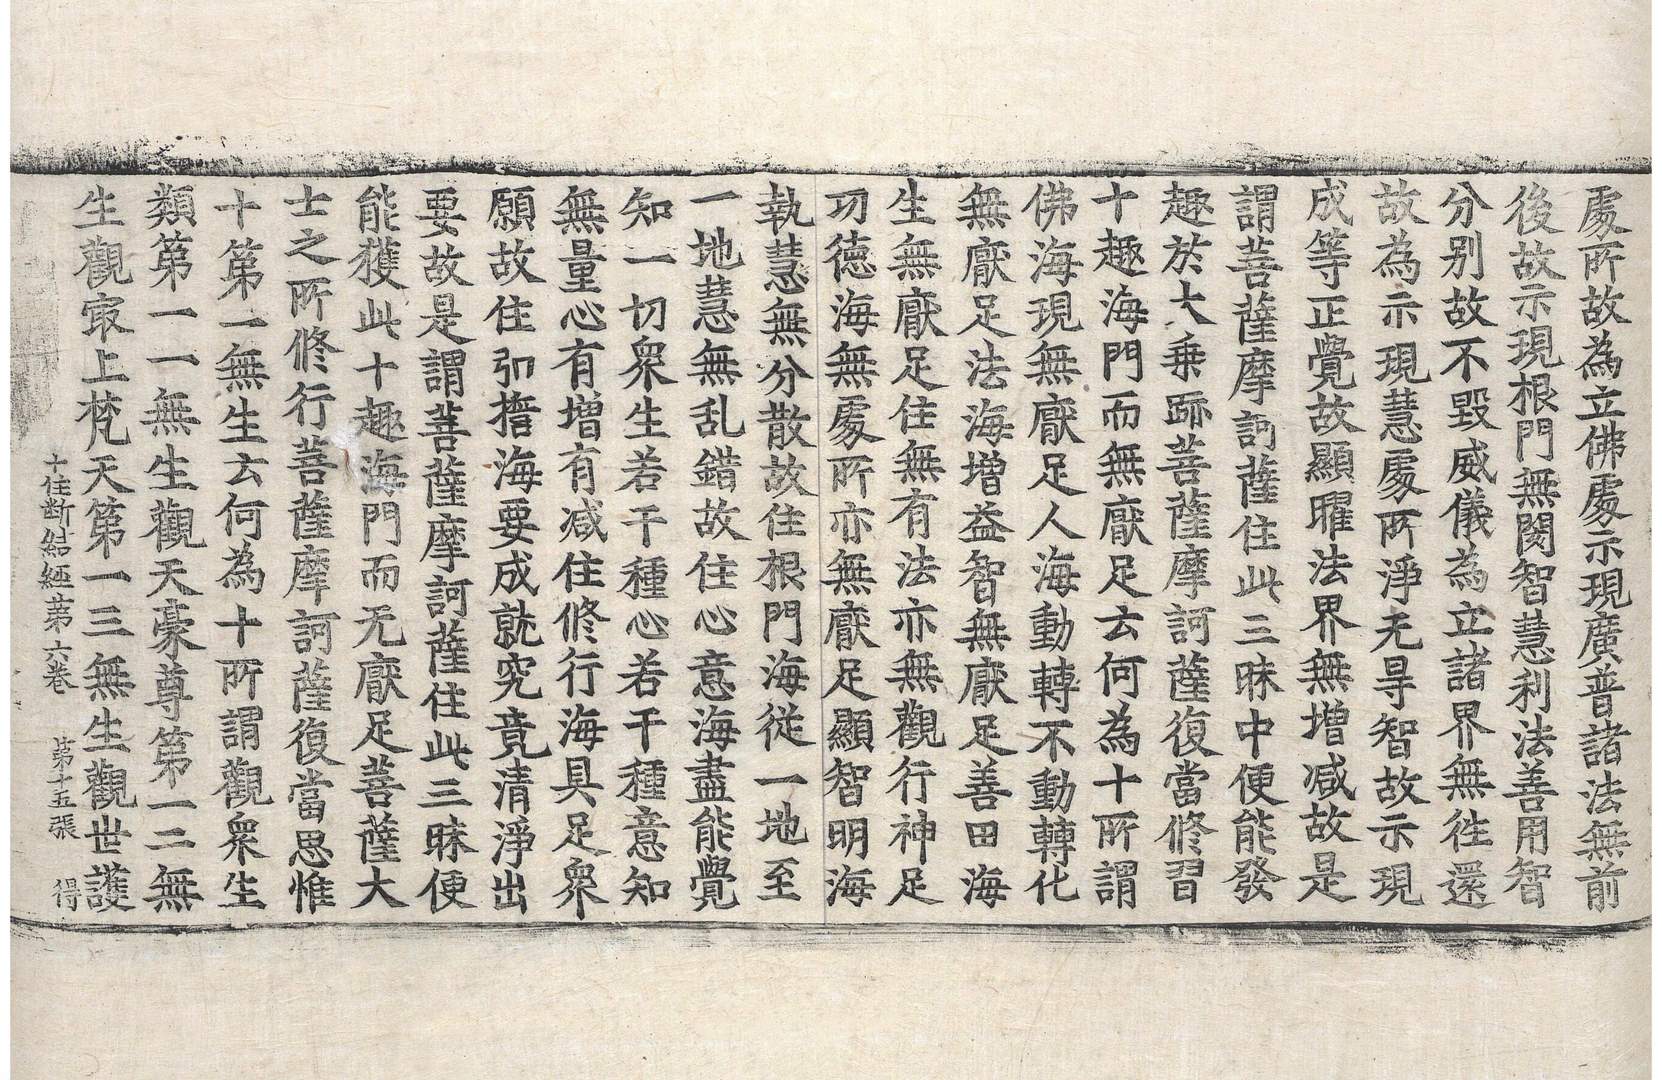 處所故為立佛處示現廣普諸法無前
後故示現根門無閡智慧利法善用智
分别故不毀威儀為立諸界無徃還
故為示現慧處所淨无㝵智故示現
成等正覺故顯曜法界無增减故是
謂菩薩摩訶薩住此三昧中便能發
趣於大乗跡菩薩摩訶薩復當修習
十趣海門而無厭足云何為十所謂
佛海現無厭足人海動轉不動轉化
無厭足法海增益智無厭足善田海
生無厭足住無有法亦無觀行神足
功德海無處所亦無厭足顯智明海
執慧無分散故住根門海従一地至
一地慧無乱錯故住心意海盡能覺
知一切衆生若干種心若干種意知
無量心有增有减住修行海具足衆
願故住𢎞誓海要成就究竟清淨出
要故是謂菩薩摩訶薩住此三昧便
能獲此十趣海門而无厭足菩薩大
士之所修行菩薩摩訶薩復當思惟
十第一無生云何為十所謂觀衆生
類第一一無生觀天豪尊第一二無
生觀㝡上梵天第一三無生觀世護
十住断結経第六卷 第十五張 得